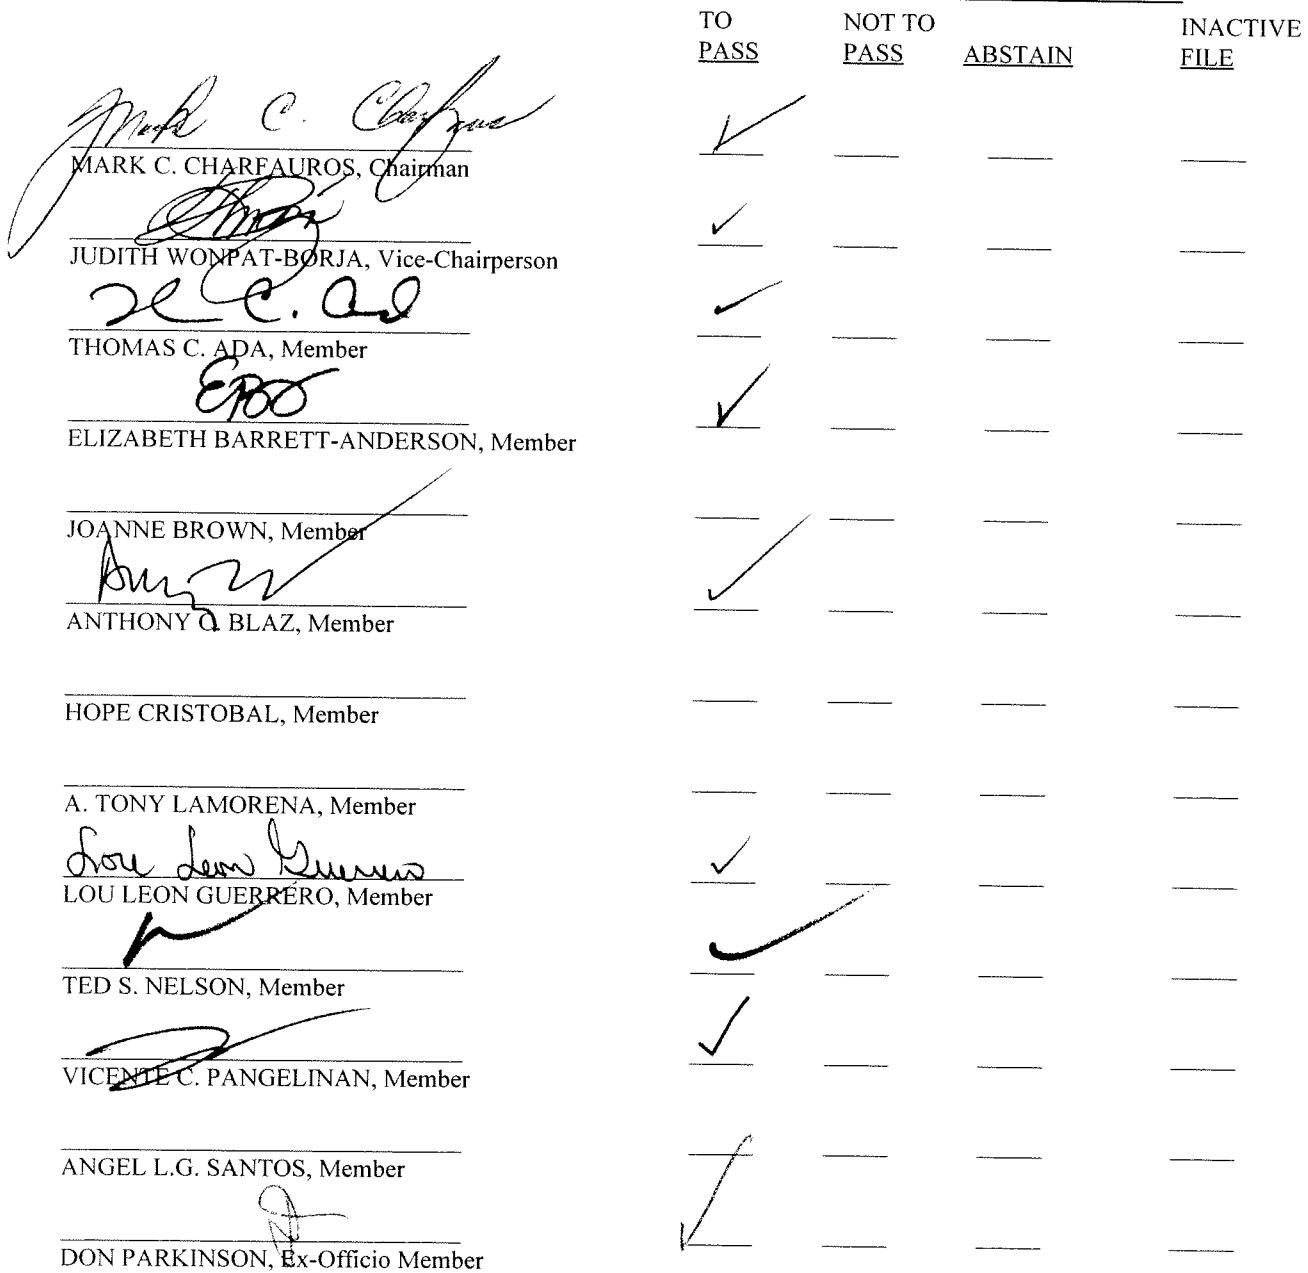 TO NOT TO INACTIVE
PASS PASS ABSTAIN FILE
Mark C. Charfauros
MARK C. CHARFAUROS, Chairman
JUDITH WONPAT-BORJA, Vice-Chairperson
THOMAS C. ADA, Member
ELIZABETH BARRETT-ANDERSON, Member
JOANNE BROWN, Member
ANTHONY C. BLAZ, Member
HOPE CRISTOBAL, Member
A. TONY LAMORENA, Member
Lou Leon Guerrero
LOU LEON GUERRERO, Member
TED S. NELSON, Member
VICENTE C. PANGELINAN, Member
ANGEL L.G. SANTOS, Member
DON PARKINSON, Ex-Officio Member